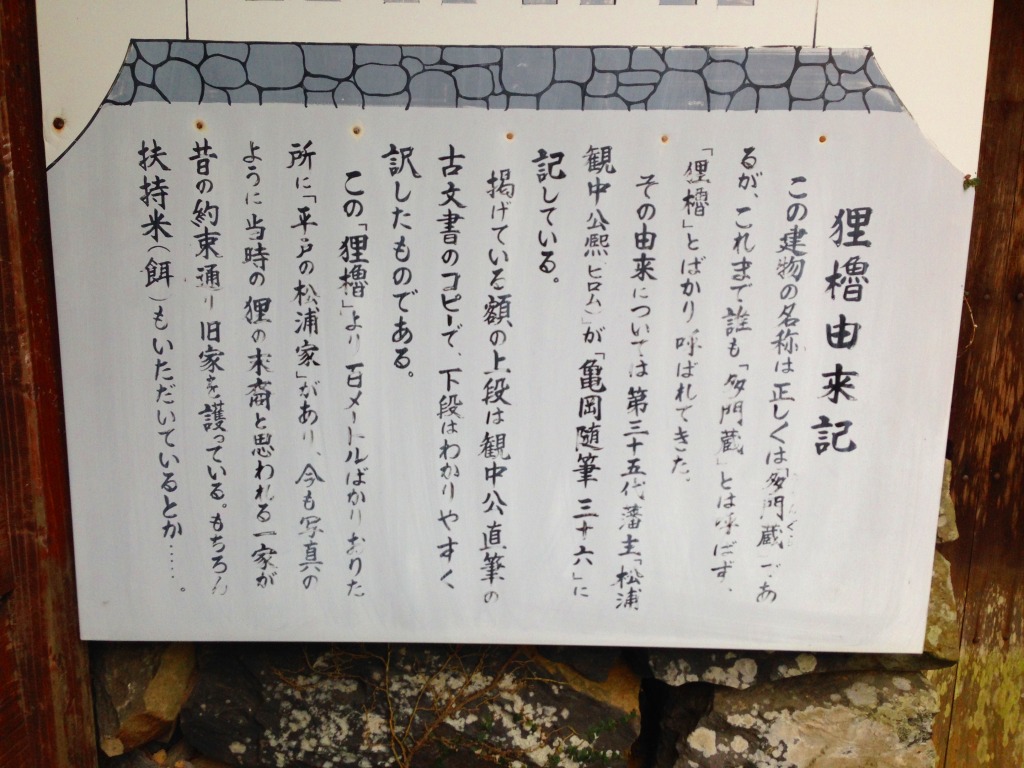 狸櫓由来記
この建物の名称は正しくは「多門蔵」であ
るが、これまで誰も「多門蔵」とは呼ばず、
「狸櫓」とばかり呼ばれてきた。
その由来については第三十五代藩主「松浦
観中公熈(ヒロム)」が「亀岡随筆三十六」に
記している。
掲げている額の上段は観中公直筆の
古文書のコピーで、下段はわかりやすく
訳したものである。
この「狸櫓」より百メートルばかりおりた
所に「平戸の松浦家」があり、今も写真の
ように当時の狸の末裔と思われる一家が
昔の約束通り旧家を護っている。もちろん
扶持米(餌)もいただいているとか……。